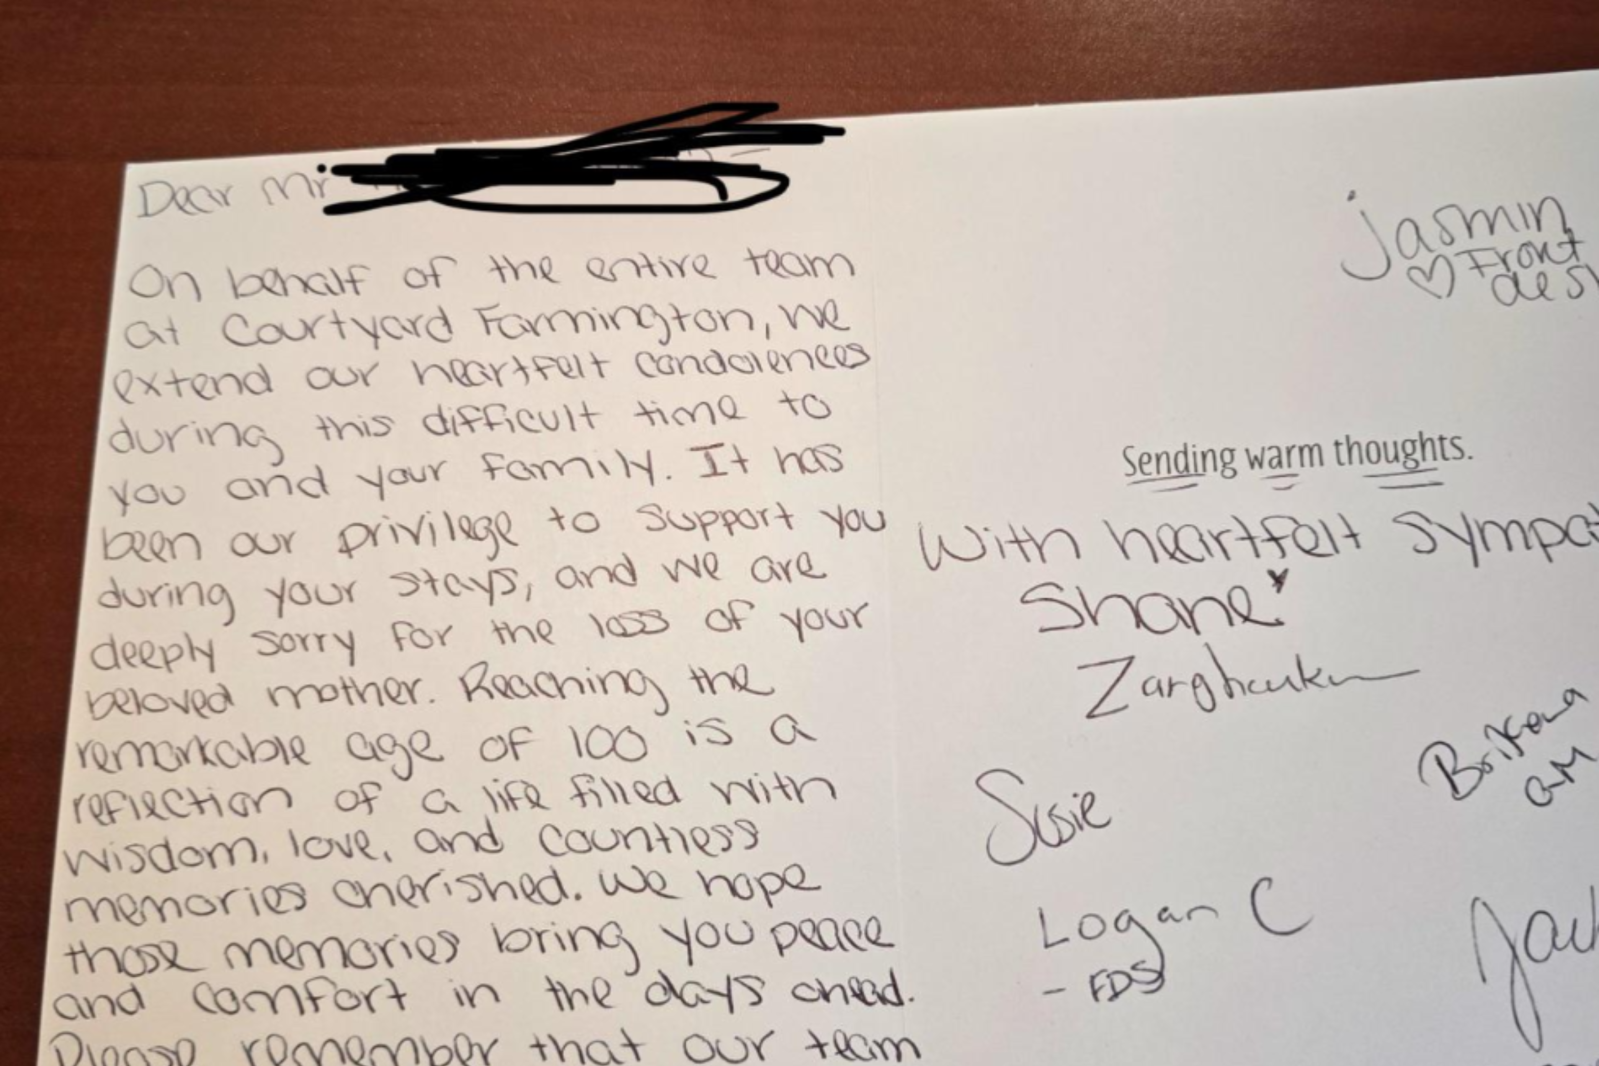 Dear Mr
On behalf of the entire team
at Courtyard Farmington, we
extend our heartfelt condolences
during this difficult time to
you and your family. It has
been our privilege to support you
during your stays, and we are
deeply sorry for the loss of your
beloved mother. Reaching the
remarkable age of 100 is a
reflection of a life filled with
wisdom, love, and countless
memories cherished. We hope
those memories bring you peace
and comfort in the days ahead.
Please remember that our team
Jasmin
Front
des
Sending warm thoughts.
With heartfelt sympat
Shane
Susie
Logan C
- FDS